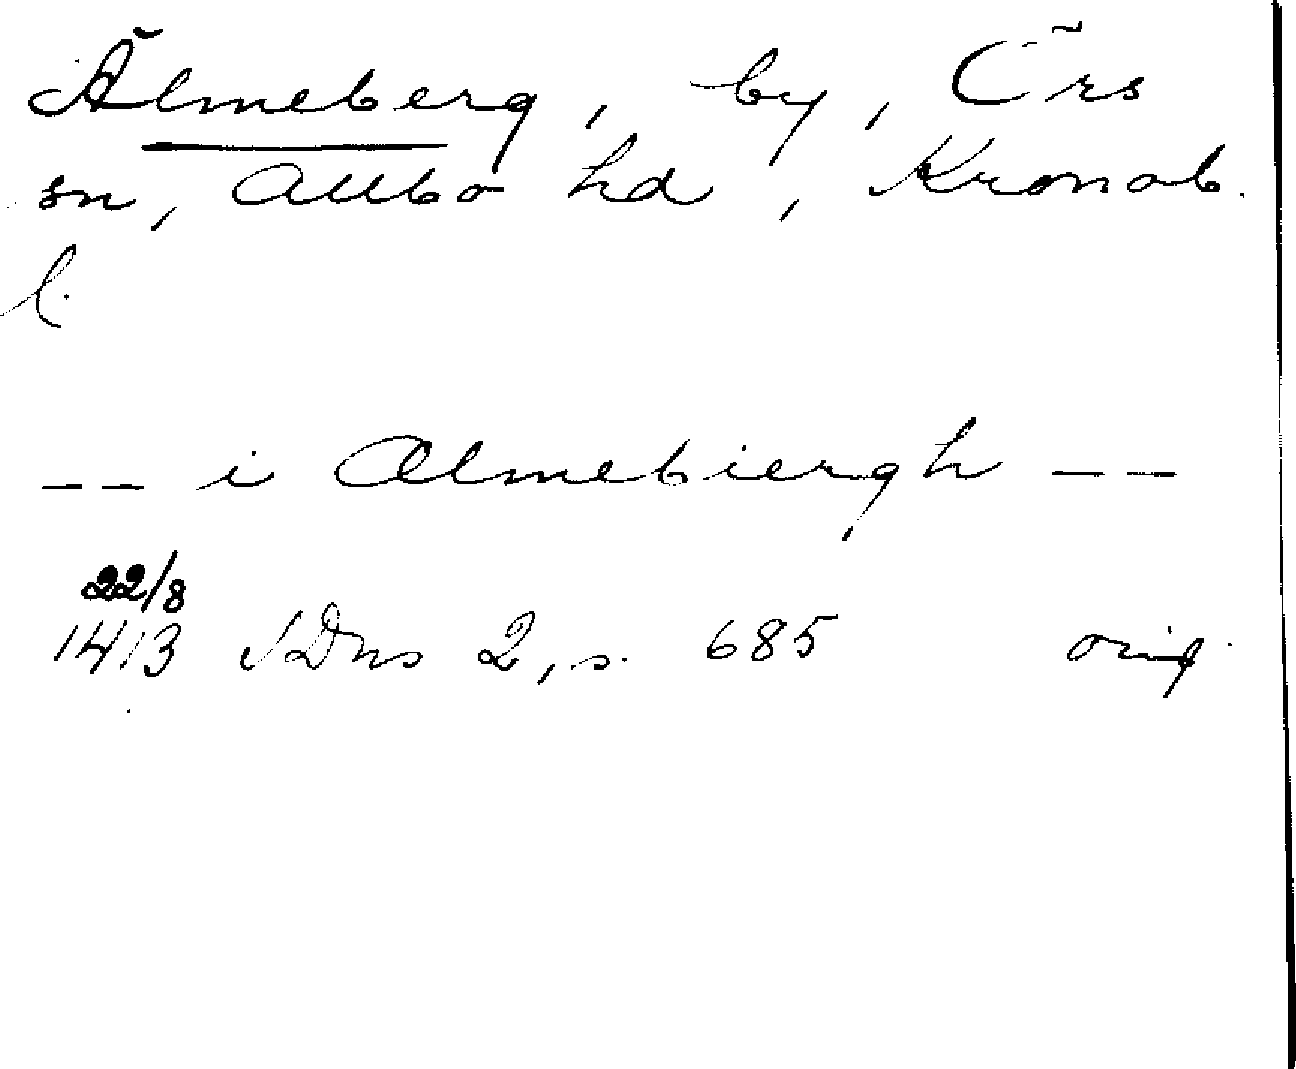 Älmeberg, by, Örs
sn, Allbo hd, Kronob.
l.
-- i Ælmebiergh --
22/8
1413 SDns 2, s. 685 orig.